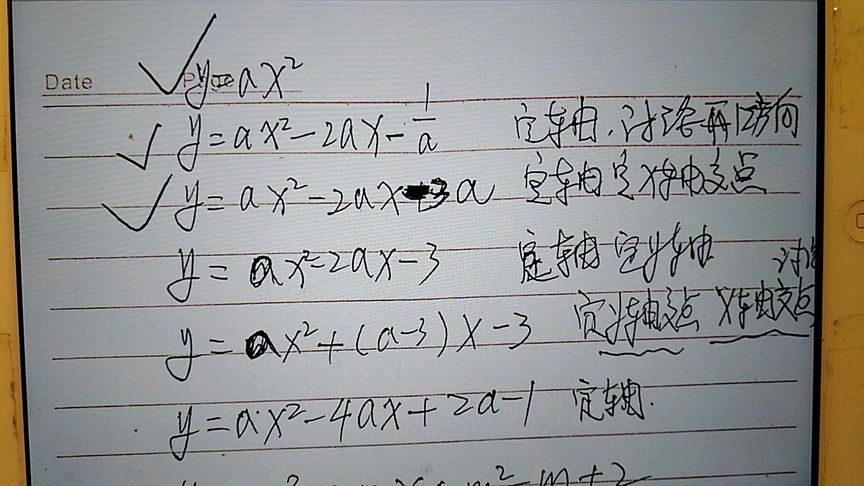 Date
y=ax²
y=ax²-2ax-1/a 定轴,讨论开口方向
y=ax²-2ax-3a 定轴定x轴交点
y=ax²-2ax-3 定轴定y轴 讨论
y=ax²+(a-3)x-3 定y轴交点 x轴交点
y=ax²-4ax+2a-1 定轴.